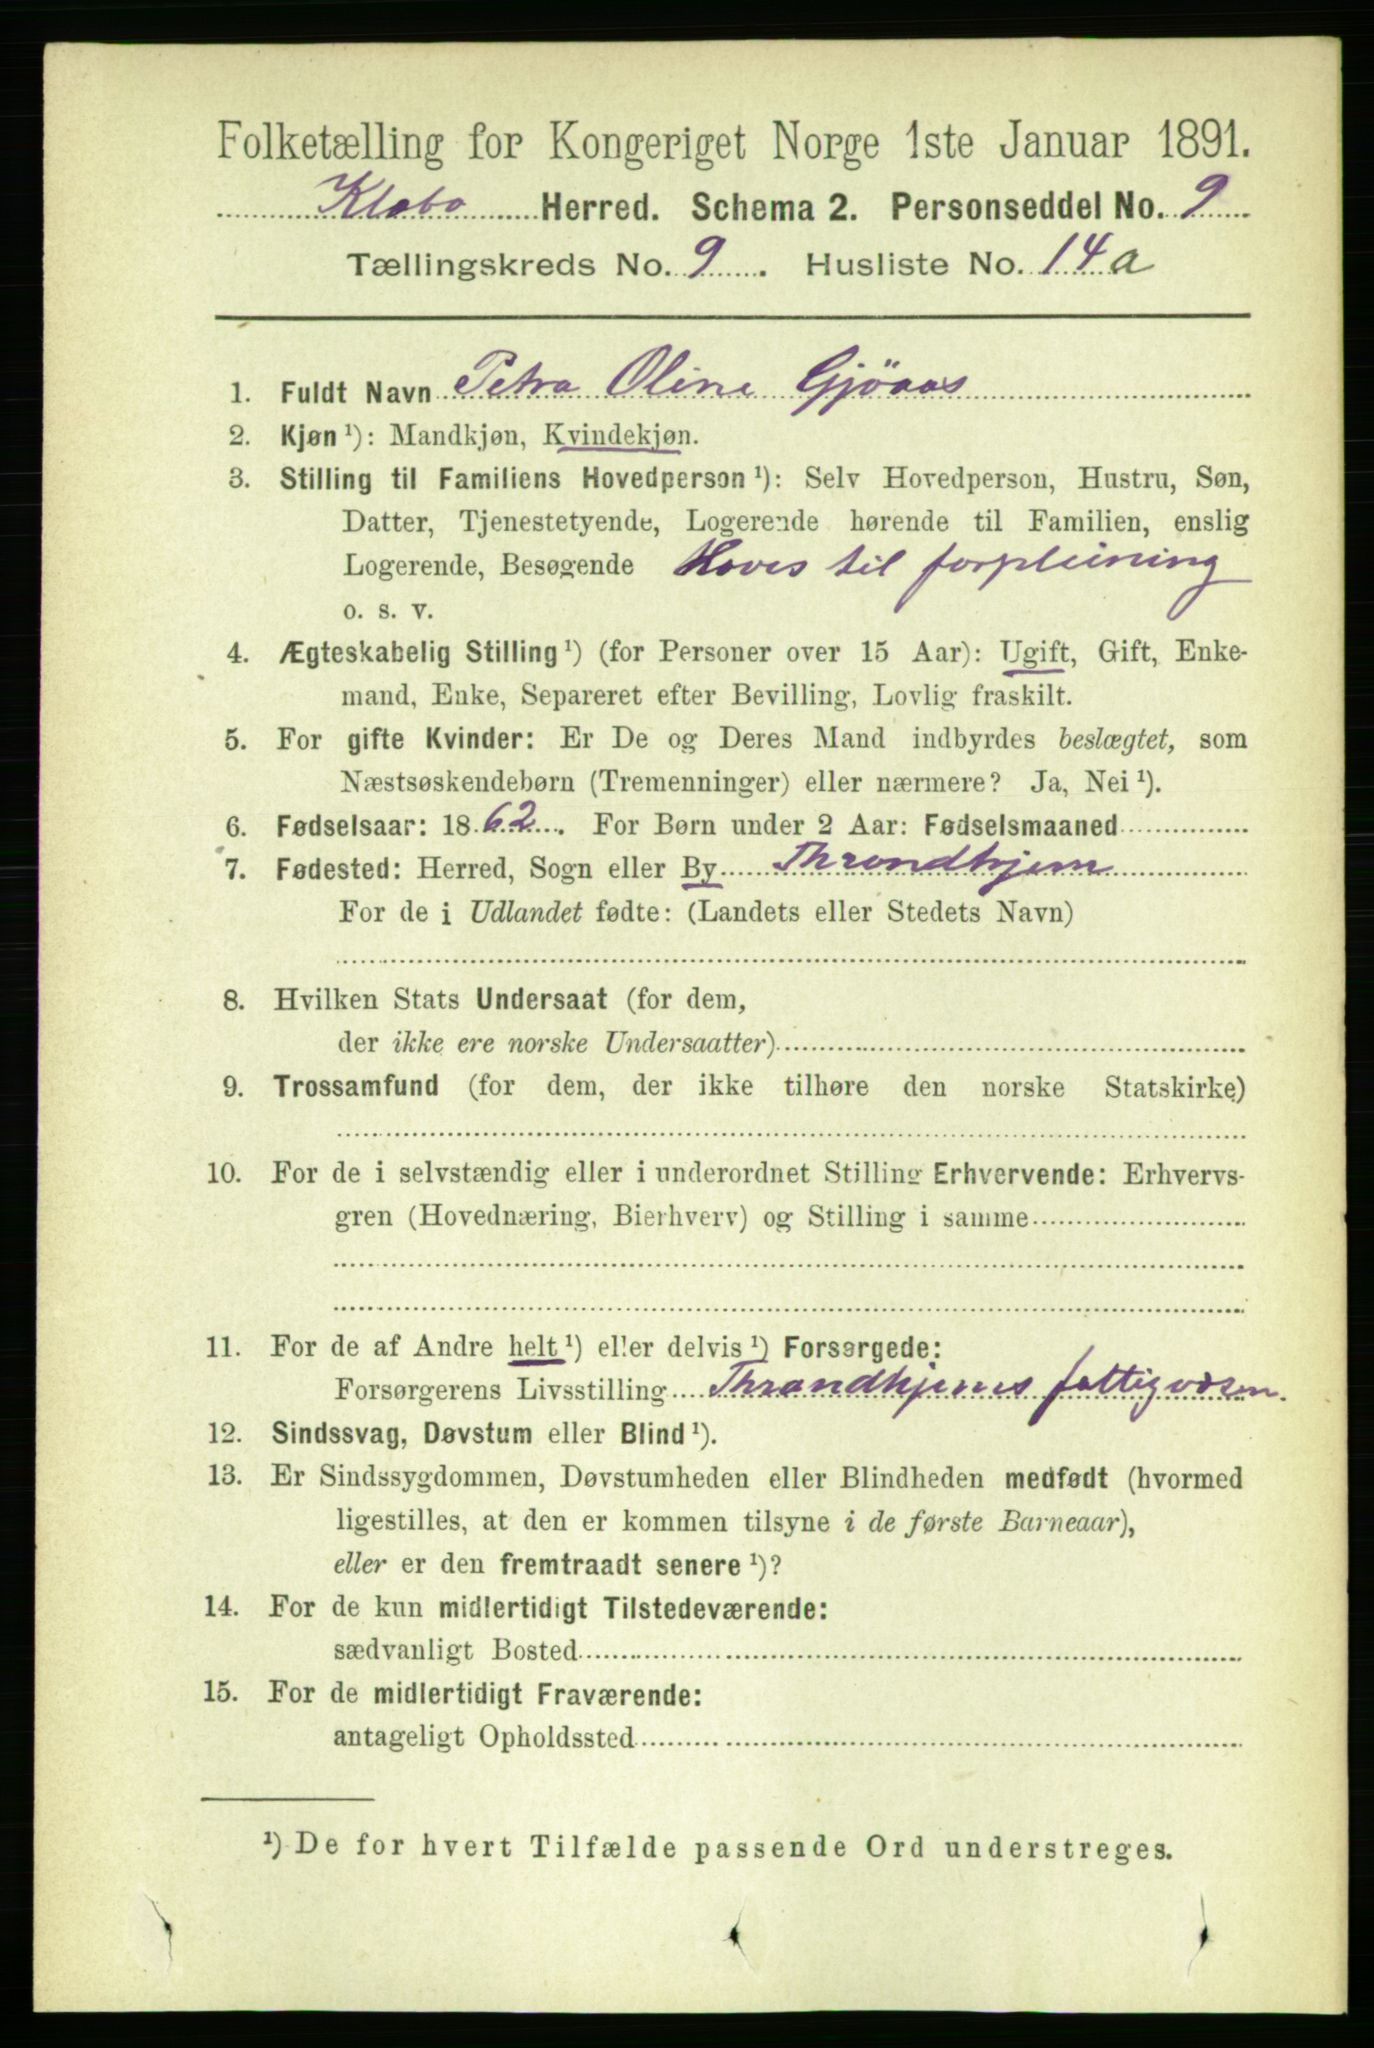 Folketælling for Kongeriget Norge 1ste Januar 1891.
Klæbo Herred. Schema 2. Personseddel No. 9
Tællingskreds No. 9. Husliste No. 14 a
1. Fuldt Navn Petra Oline Gjöaas
2. Kjøn ¹): Mandkjøn, Kvindekjøn.
3. Stilling til Familiens Hovedperson ¹): Selv Hovedperson, Hustru, Søn,
Datter, Tjenestetyende, Logerende hørende til Familien, enslig
Logerende, Besøgende Haves til forpleining
o. s. v.
4. Ægteskabelig Stilling ¹) (for Personer over 15 Aar): Ugift, Gift, Enke-
mand, Enke, Separeret efter Bevilling, Lovlig fraskilt.
5. For gifte Kvinder: Er De og Deres Mand indbyrdes beslægtet, som
Næstsøskendebørn (Tremenninger) eller nærmere? Ja, Nei ¹).
6. Fødselsaar: 1862. For Børn under 2 Aar: Fødselsmaaned
7. Fødested: Herred, Sogn eller By Throndhjem
For de i Udlandet fødte: (Landets eller Stedets Navn)
8. Hvilken Stats Undersaat (for dem,
der ikke ere norske Undersaatter)
9. Trossamfund (for dem, der ikke tilhøre den norske Statskirke)
10. For de i selvstændig eller i underordnet Stilling Erhvervende: Erhvervs-
gren (Hovednæring, Bierhverv) og Stilling i samme
11. For de af Andre helt ¹) eller delvis ¹) Forsørgede:
Forsørgerens Livsstilling Throndhjems fattigvæsen.
12. Sindssvag, Døvstum eller Blind ¹).
13. Er Sindssygdommen, Døvstumheden eller Blindheden medfødt (hvormed
ligestilles, at den er kommen tilsyne i de første Barneaar),
eller er den fremtraadt senere ¹)?
14. For de kun midlertidigt Tilstedeværende:
sædvanligt Bosted
15. For de midlertidigt Fraværende:
antageligt Opholdssted
¹) De for hvert Tilfælde passende Ord understreges.